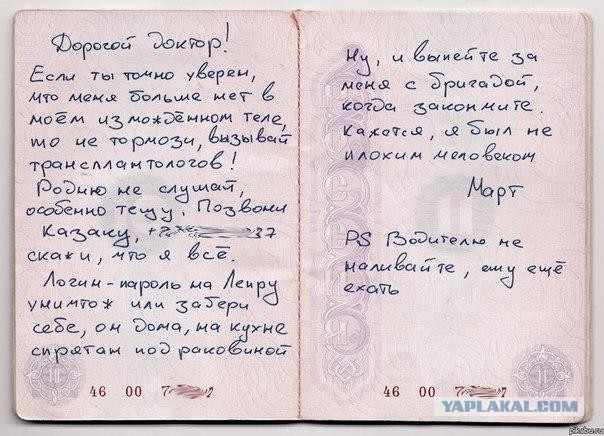 Дорогой доктор!
Если ты точно уверен,
что меня больше нет в
моём измождённом теле,
то не тормози, вызывай
трансплантологов!
Родню не слушай,
особенно тещу. Позвони
Казаку, +7 37
скажи, что я всё.
Логин-пароль на Лепру
уничтож или забери
себе, он дома, на кухне
спрятан под раковиной
46 00 7
Ну, и выпейте за
меня с бригадой,
когда закончите.
Кажется, я был не
плохим человеком
Март
PS Водителю не
наливайте, ему ещё
ехать
46 00 7
YAPLAKAL.COM
pikabu.ru